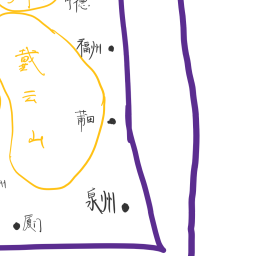 德
福州
戴
云
山
莆田
泉州
州
厦门